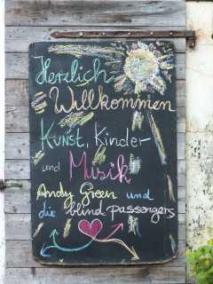 Herzlich
Willkommen
Kunst, Kinder-
und Musik
Andy Green und
die blind passengers